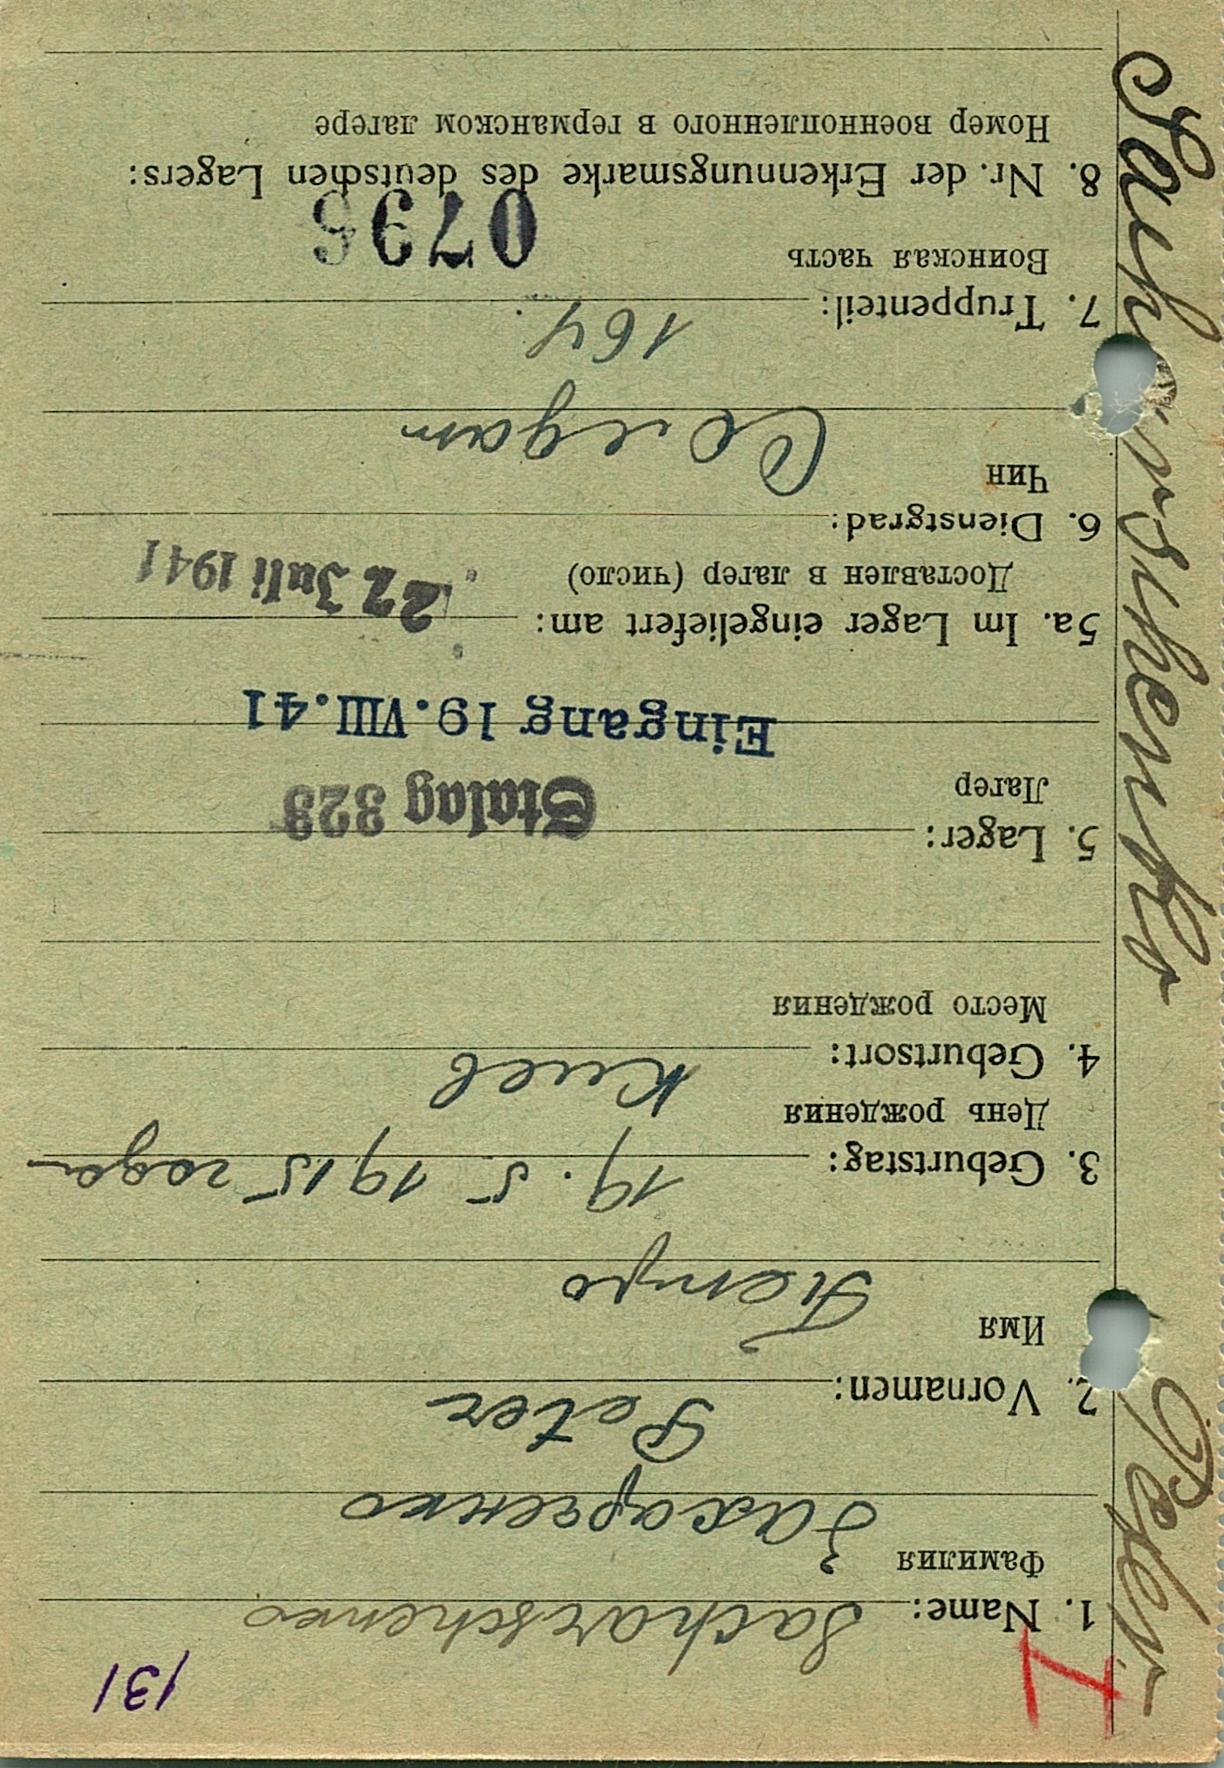 131
I
1. Name: Sacharschenko
Фамилия
Захарченко
Peter
2. Vornamen:
Имя
Петро
3. Geburtstag: 19. 5 1915 года
День рождения
4. Geburtsort: Киев
Место рождения
5. Lager: Stalag 323
Лагер
Eingang 19.VIII.41
5a. Im Lager eingeliefert am: 22 Juli 1941
Доставлен в лагер (число)
6. Dienstgrad:
Чин
7. Truppenteil: 164
Воинская часть
0796
8. Nr. der Erkennungsmarke des deutschen Lagers:
Номер военнопленного в германском лагере
Sacharschenko Peter.